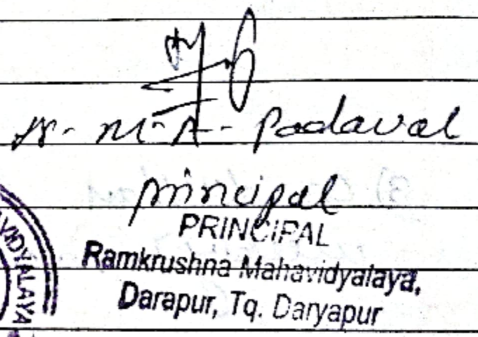 M. A. Padaval
principal
PRINCIPAL
Ramkrushna Mahavidyalaya,
Darapur, Tq. Daryapur
VIDYALAYA